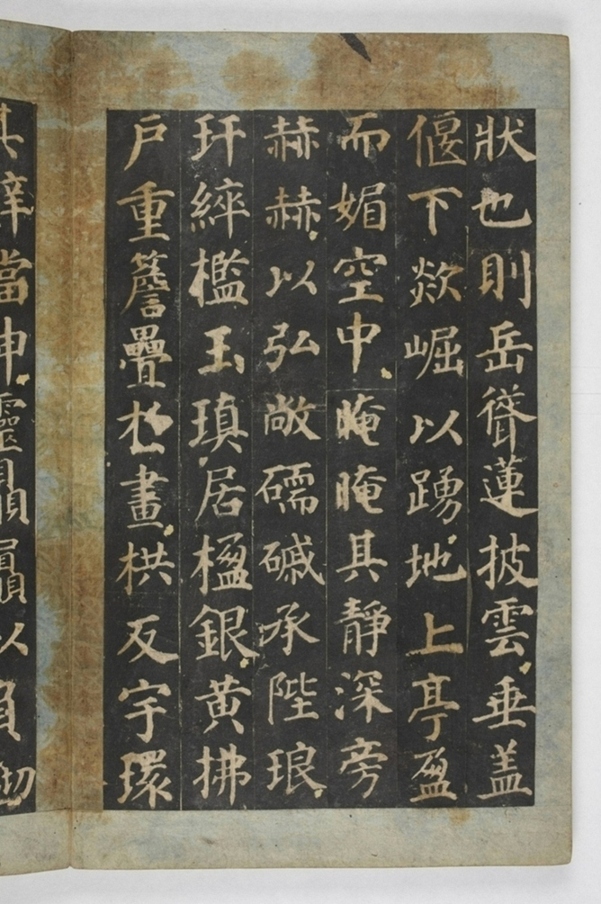 狀也則岳聳蓮披雲垂蓋
偃下欻崛以踴地上亭盈
而媚空中晻晻其靜深旁
赫赫以弘敞礝磩承陛琅
玕綷檻玉瑱居楹銀黃拂
戶重簷疊於畫栱反宇環
其壁璫坤靈贔屭以負砌